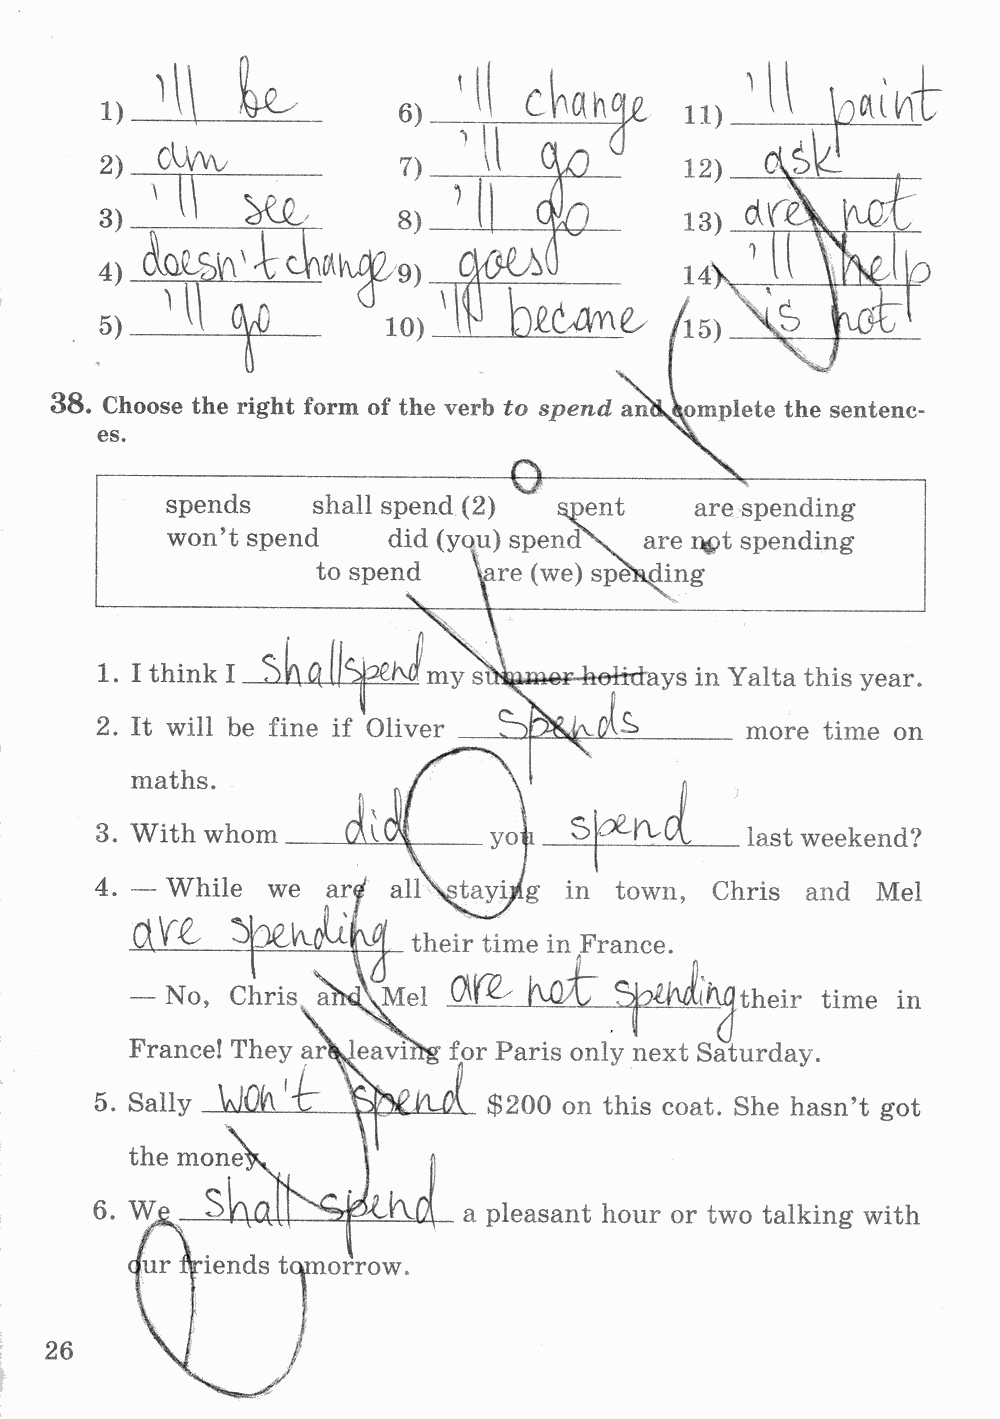 1) 'll be 6) 'll change 11) 'll paint
2) am 7) 'll go 12) ask
3) 'll see 8) 'll go 13) are not
4) doesn't change 9) goes 14) 'll help
5) 'll go 10) 'll become 15) is not
38. Choose the right form of the verb to spend and complete the sentenc-
es.
spends shall spend (2) spent are spending
won't spend did (you) spend are not spending
to spend are (we) spending
1. I think I shall spend my summer holidays in Yalta this year.
2. It will be fine if Oliver spends more time on
maths.
3. With whom did you spend last weekend?
4. — While we are all staying in town, Chris and Mel
are spending their time in France.
— No, Chris and Mel are not spending their time in
France! They are leaving for Paris only next Saturday.
5. Sally won't spend $200 on this coat. She hasn't got
the money.
6. We shall spend a pleasant hour or two talking with
our friends tomorrow.
26